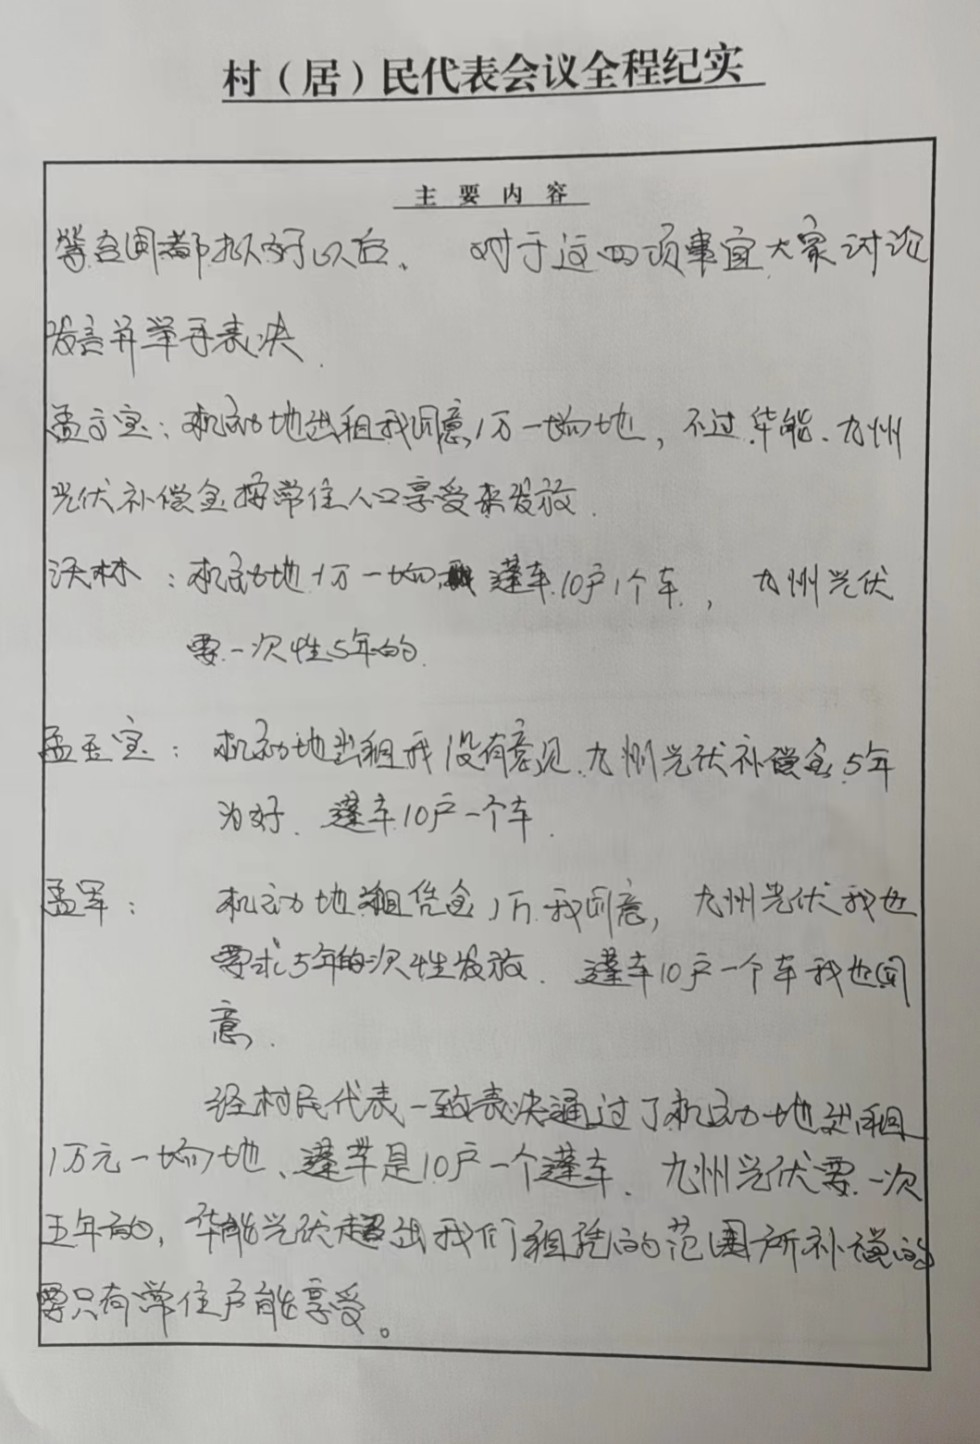 村（居）民代表会议全程纪实
主要内容
等合同都拟好以后、对于这四项事宜大家讨论
发言并举手表决.
孟立宝：机动地出租我同意1万一垧地，不过华能、九州
光伏补偿金按常住人口享受来发放.
沃林：机动地1万一垧 篷车10户1个车，九州光伏
要一次性5年的.
孟玉宝：机动地出租我没有意见.九州光伏补偿金5年
为好.篷车10户一个车.
孟军：机动地租凭金1万我同意，九州光伏我也
要求5年的一次性发放.篷车10户一个车我也同
意.
经村民代表一致表决通过了机动地出租
1万元一垧地、篷车是10户一个篷车.九州光伏要一次
五年的，华能光伏超出我们租凭的范围所补偿的
要只有常住户能享受。